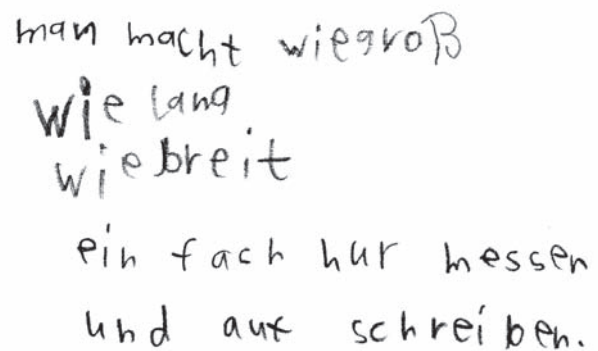 man macht wiegroß
wie lang
wie breit
ein fach nur messen
und auf schreiben.